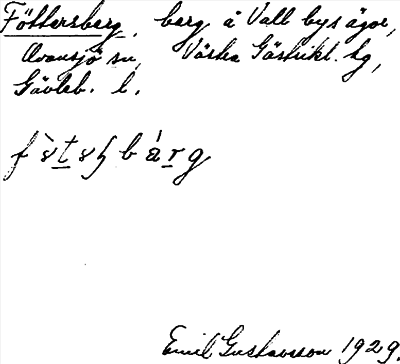 Föttersberg, berg å Vall bys ägor,
Ovansjö sn, Västra Gästrikl. hg,
Gävleb. l.
Emil Gustavsson 1929.